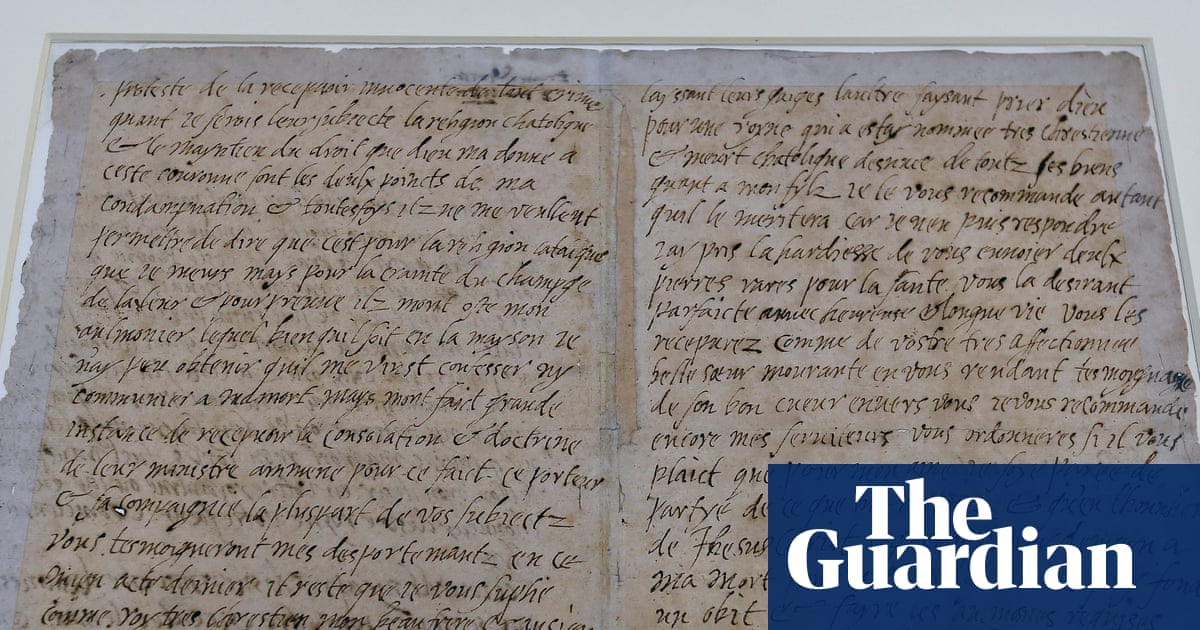 proteste de la recepvoir innocente de tout crime
quant je serois leur subjecte la religion chatolique
& le mayntien du droit que dieu ma donne a
ceste couronne sont les deulx poincts de ma
condampnation & toutesfoys ilz ne me veullent
permettre de dire que cest pour la religion catolique
que je meurs mays pour la crainte du champge
de la leur & pour preuve ilz mont oste mon
aulmonier lequel bien quil soit en la mayson je
nay peu obtenir quil me vinst confesser ny
communier a ma mort mays mont faict grande
instance de recepvoir la consolation & doctrine
de leur ministre ammene pour ce faict ce porteur
& sa compaignie la pluspart de vos subjectz
vous tesmoigneront mes desportemantz en ce
mien acte dernier il reste que je vous suplie
comme roy tres chrestien mon beaufrere & ansien
layssant leurs gaiges laultre faysant prier dieu
pour une royne qui a estay nommee tres chrestienne
& meurt chatolique desnuee de toutz ses biens
quant a mon fylz je le vous recommande autant
quil le meritera car je nen puis respondre
jay pris la hardiesse de vous envoier deulx
pierres rares pour la sante vous la desirant
parfaicte avvec heureuse & longue vie vous les
recepvrez comme de vostre tres affectionnee
belle soeur mourante en vous rendant tesmoygnage
de son bon cueur envers vous je vous recommande
encore mes serviteurs vous ordonneres si il vous
plaict que
partye de
de Jhesus
ma mort
un obit
The
Guardian